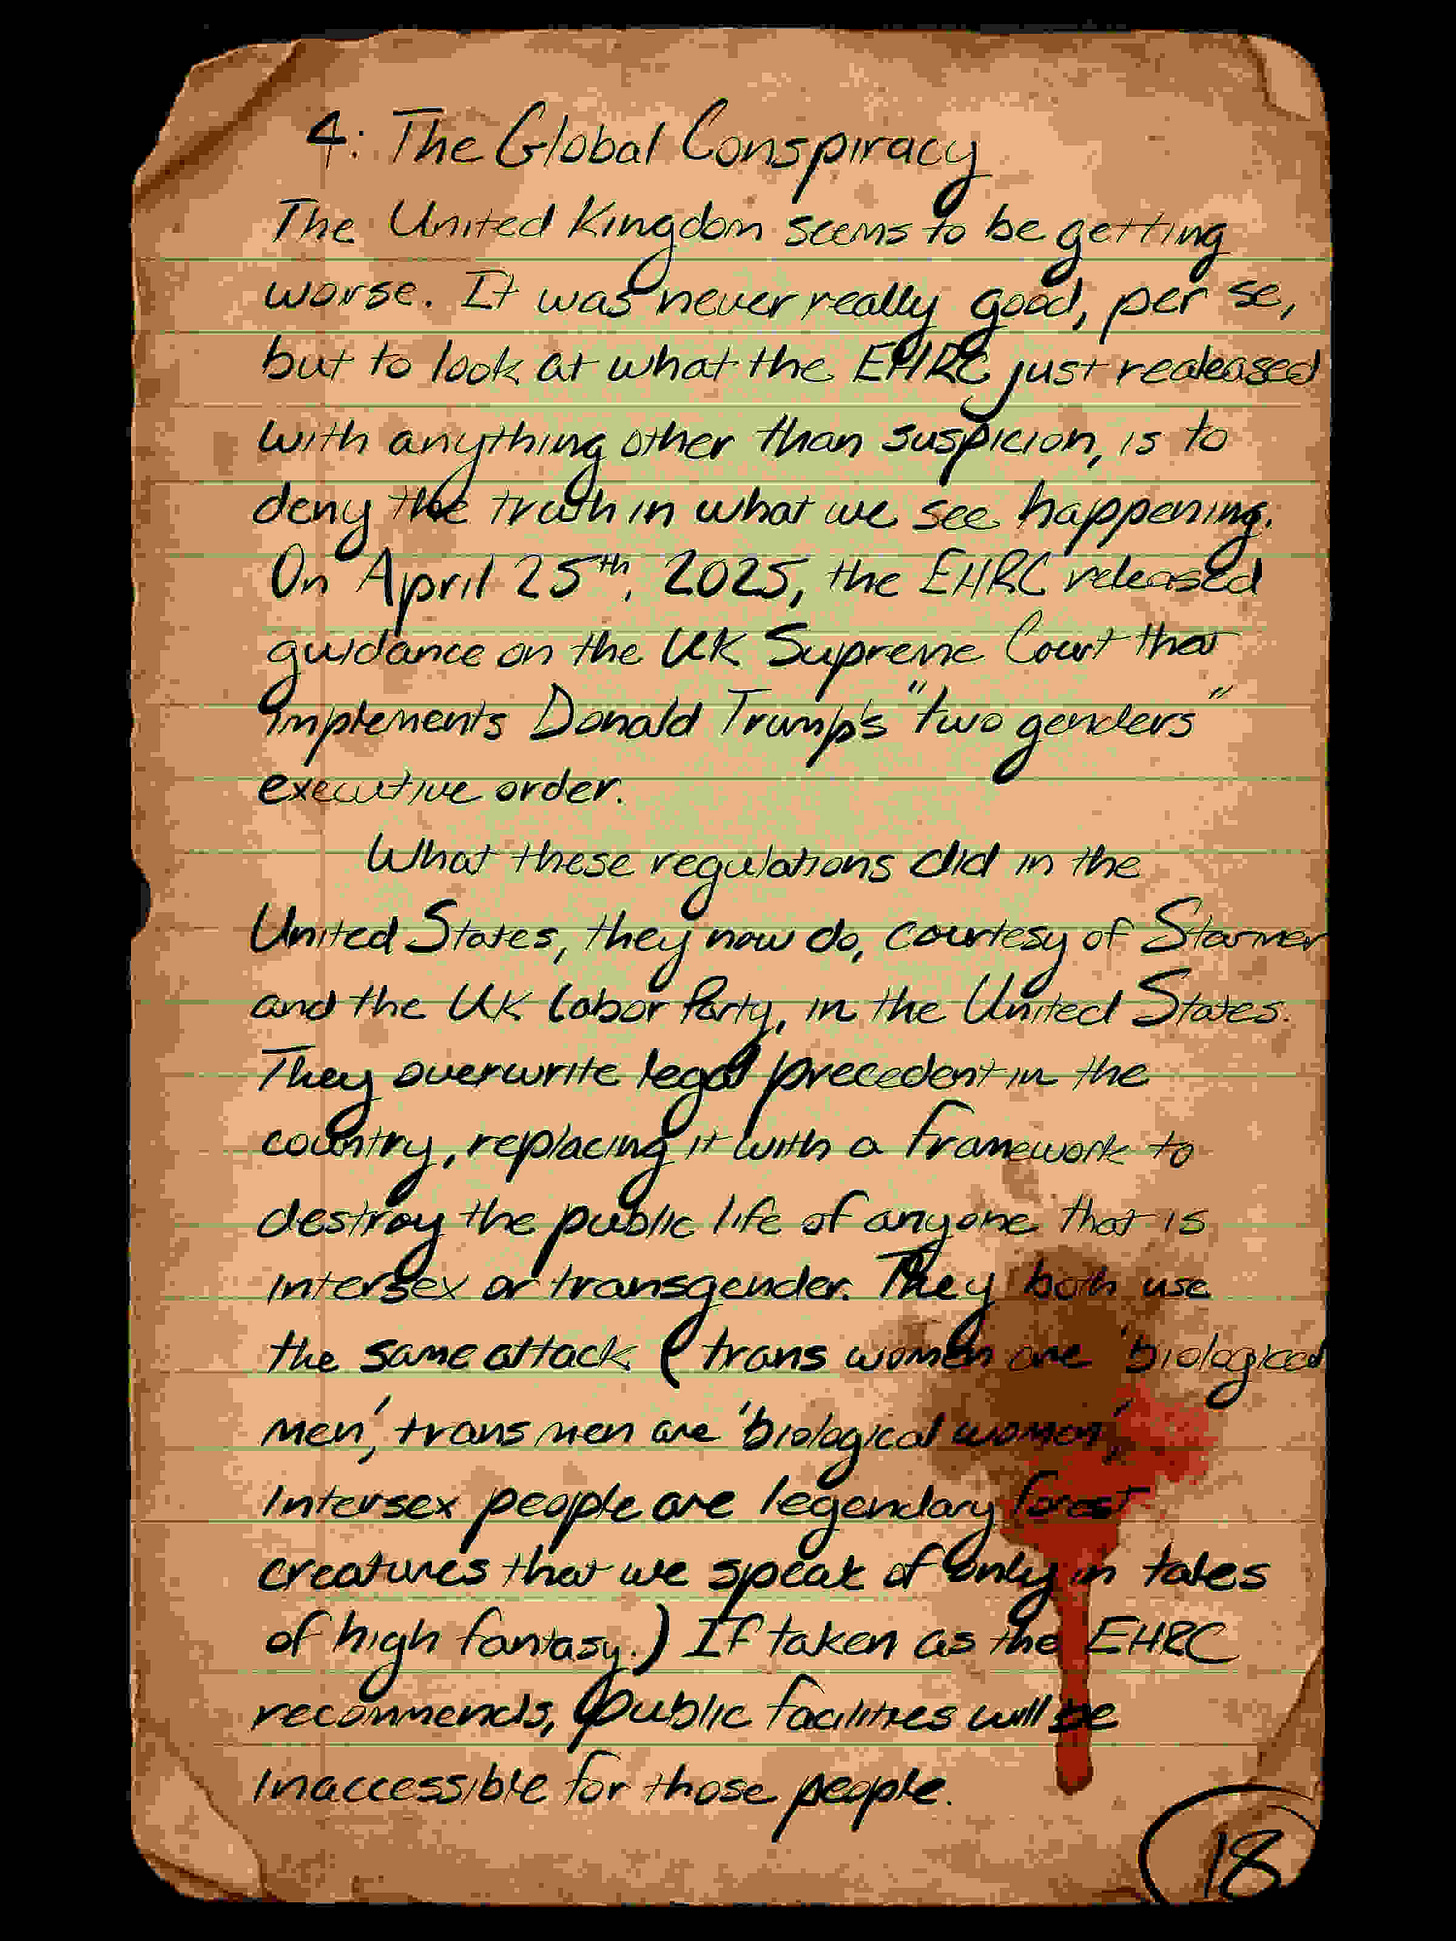 4: The Global Conspiracy
The United Kingdom seems to be getting
worse. It was never really good, per se,
but to look at what the EHRC just realeased
with anything other than suspicion, is to
deny the truth in what we see happening.
On April 25th, 2025, the EHRC released
guidance on the UK Supreme Court that
implements Donald Trump's "two genders"
executive order.
What these regulations did in the
United States, they now do, courtesy of Starmer
and the UK Labor Party, in the United States.
They overwrite legal precedent in the
country, replacing it with a framework to
destroy the public life of anyone that is
intersex or transgender. They both use
the same attack (trans women are 'biological
men', trans men are 'biological women',
intersex people are legendary forest
creatures that we speak of only in tales
of high fantasy.) If taken as the EHRC
recommends, public facilities will be
inaccessible for those people.
18